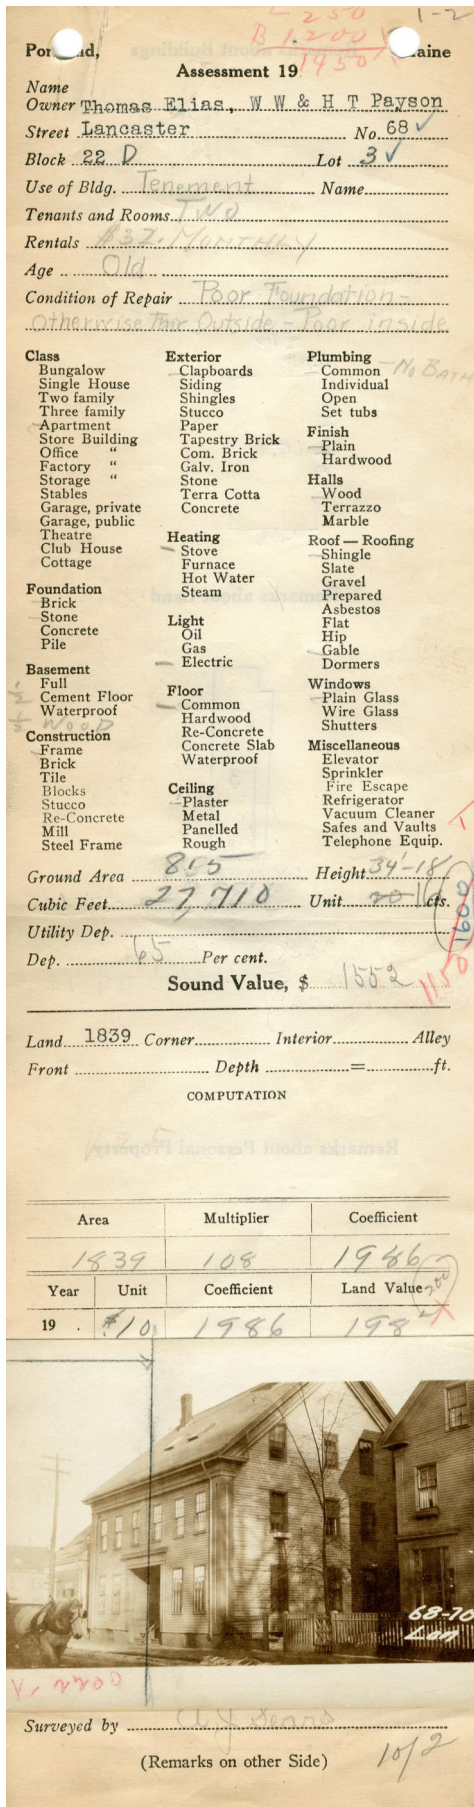 L 250
1-2
B 1200
1450
Portland, Maine
Assessment 19
Name
Owner Thomas Elias, W W & H T Payson
Street Lancaster No 68 ✓
Block 22 D Lot 3 ✓
Use of Bldg. Tenement Name
Tenants and Rooms Two
Rentals $32. Monthly
Age Old
Condition of Repair Poor Foundation-
otherwise Fair Outside - Poor inside
Class
Bungalow
Single House
Two family
Three family
Apartment
Store Building
Office "
Factory "
Storage "
Stables
Garage, private
Garage, public
Theatre
Club House
Cottage
Foundation
Brick
Stone
Concrete
Pile
Basement
Full
Cement Floor
Waterproof
Wood
Construction
Frame
Brick
Tile
Blocks
Stucco
Re-Concrete
Mill
Steel Frame
Exterior
Clapboards
Siding
Shingles
Stucco
Paper
Tapestry Brick
Com. Brick
Galv. Iron
Stone
Terra Cotta
Concrete
Heating
Stove
Furnace
Hot Water
Steam
Light
Oil
Gas
Electric
Floor
Common
Hardwood
Re-Concrete
Concrete Slab
Waterproof
Ceiling
Plaster
Metal
Panelled
Rough
Plumbing
Common - No Bath
Individual
Open
Set tubs
Finish
Plain
Hardwood
Halls
Wood
Terrazzo
Marble
Roof — Roofing
Shingle
Slate
Gravel
Prepared
Asbestos
Flat
Hip
Gable
Dormers
Windows
Plain Glass
Wire Glass
Shutters
Miscellaneous
Elevator
Sprinkler
Fire Escape
Refrigerator
Vacuum Cleaner
Safes and Vaults
Telephone Equip.
Ground Area 815 Height 34'-18'
Cubic Feet 27,710 Unit 20 16 cts.
1600
Utility Dep.
Dep. 65 Per cent.
1150
Sound Value, $ 1552
Land 1839 Corner Interior Alley
Front Depth = ft.
COMPUTATION
Area Multiplier Coefficient
1839 108 1986
Year Unit Coefficient Land Value
200
19 . $10 1986 198
68-70
Lan
Surveyed by
(Remarks on other Side)
1 of 2